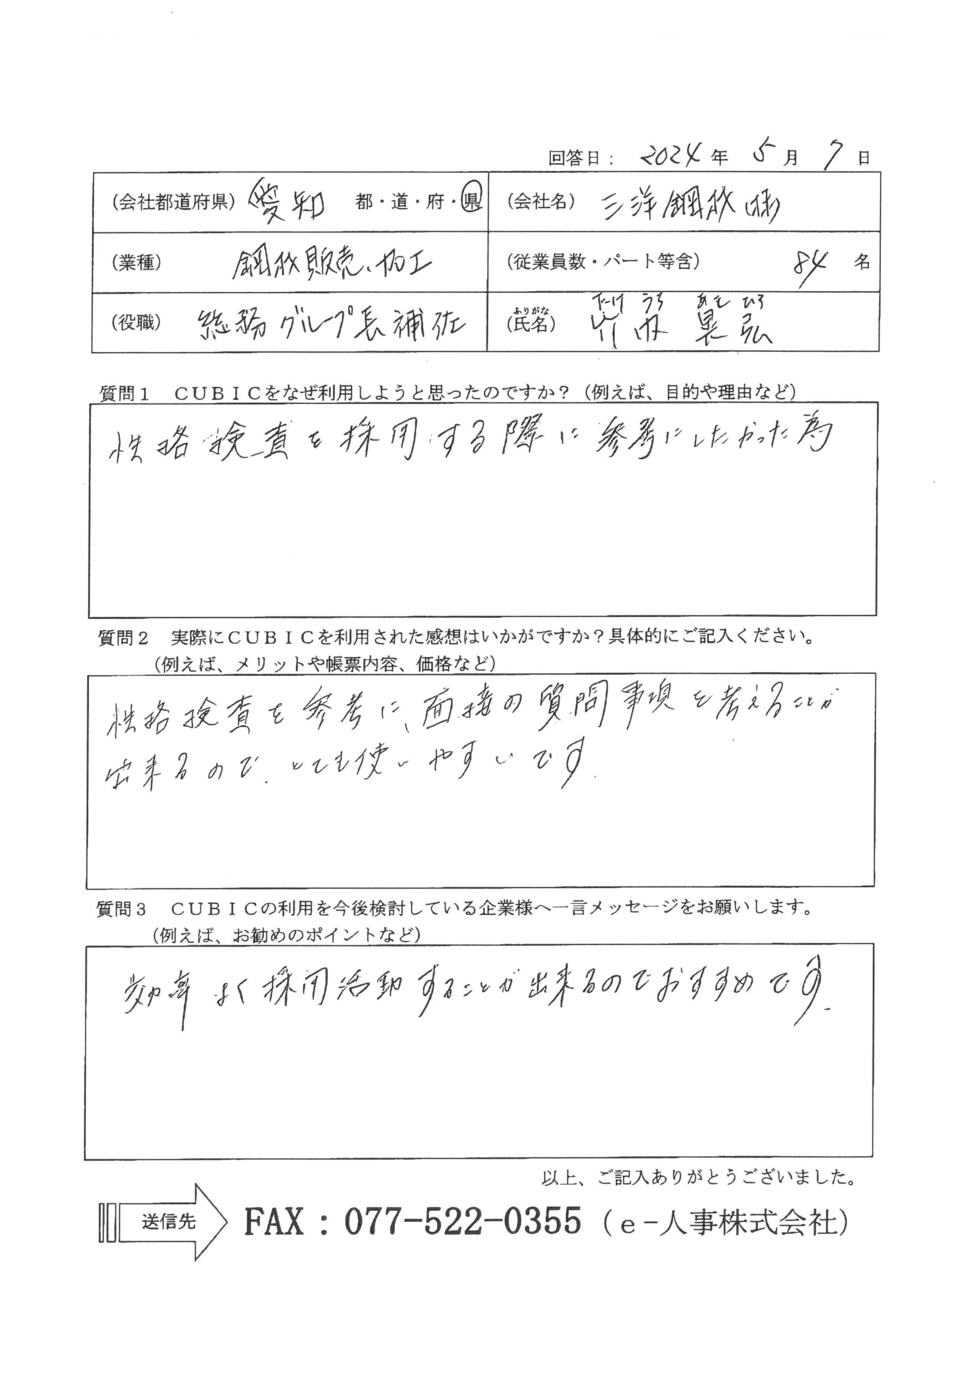 回答日： 2024 年 5 月 7 日
（会社都道府県） 愛知 都・道・府・県
（会社名） 三洋鋼材(株)
（業種） 鋼材販売、加工
（従業員数・パート等含） 84 名
（役職） 総務グループ長補佐
ふりがな たけ うち あき ひろ
（氏名） 竹内 晃弘
質問１ ＣＵＢＩＣをなぜ利用しようと思ったのですか？（例えば、目的や理由など）
性格検査を採用する際に参考にしたかった為
質問２ 実際にＣＵＢＩＣを利用された感想はいかがですか？具体的にご記入ください。
（例えば、メリットや帳票内容、価格など）
性格検査を参考に、面接の質問事項を考えることが
出来るので、とても使いやすいです。
質問３ ＣＵＢＩＣの利用を今後検討している企業様へ一言メッセージをお願いします。
（例えば、お勧めのポイントなど）
効率よく採用活動することが出来るのでおすすめです。
以上、ご記入ありがとうございました。
送信先 FAX：077-522-0355（ｅ-人事株式会社）